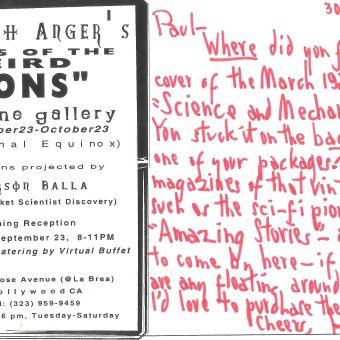 H ANGER'S
S OF THE
EIRD
ONS"
ne gallery
ber23-October23
nal Equinox)
ns projected by
SON BALLA
ket Scientist Discovery)
ning Reception
eptember 23, 8-11PM
atering by Virtual Buffet
ose Avenue (@La Brea)
ollywood CA
l: (323) 959-9459
6 pm, Tuesday-Saturday
30
Paul-
Where did you f
cover of the March 19
"Science and Mechan
You stuck it on the ba
one of your packages.
magazines of that vin
such as the sci-fi pion
"Amazing Stories" - a
to come by here - if
are any floating around
I'd love to purchase the
Cheers,